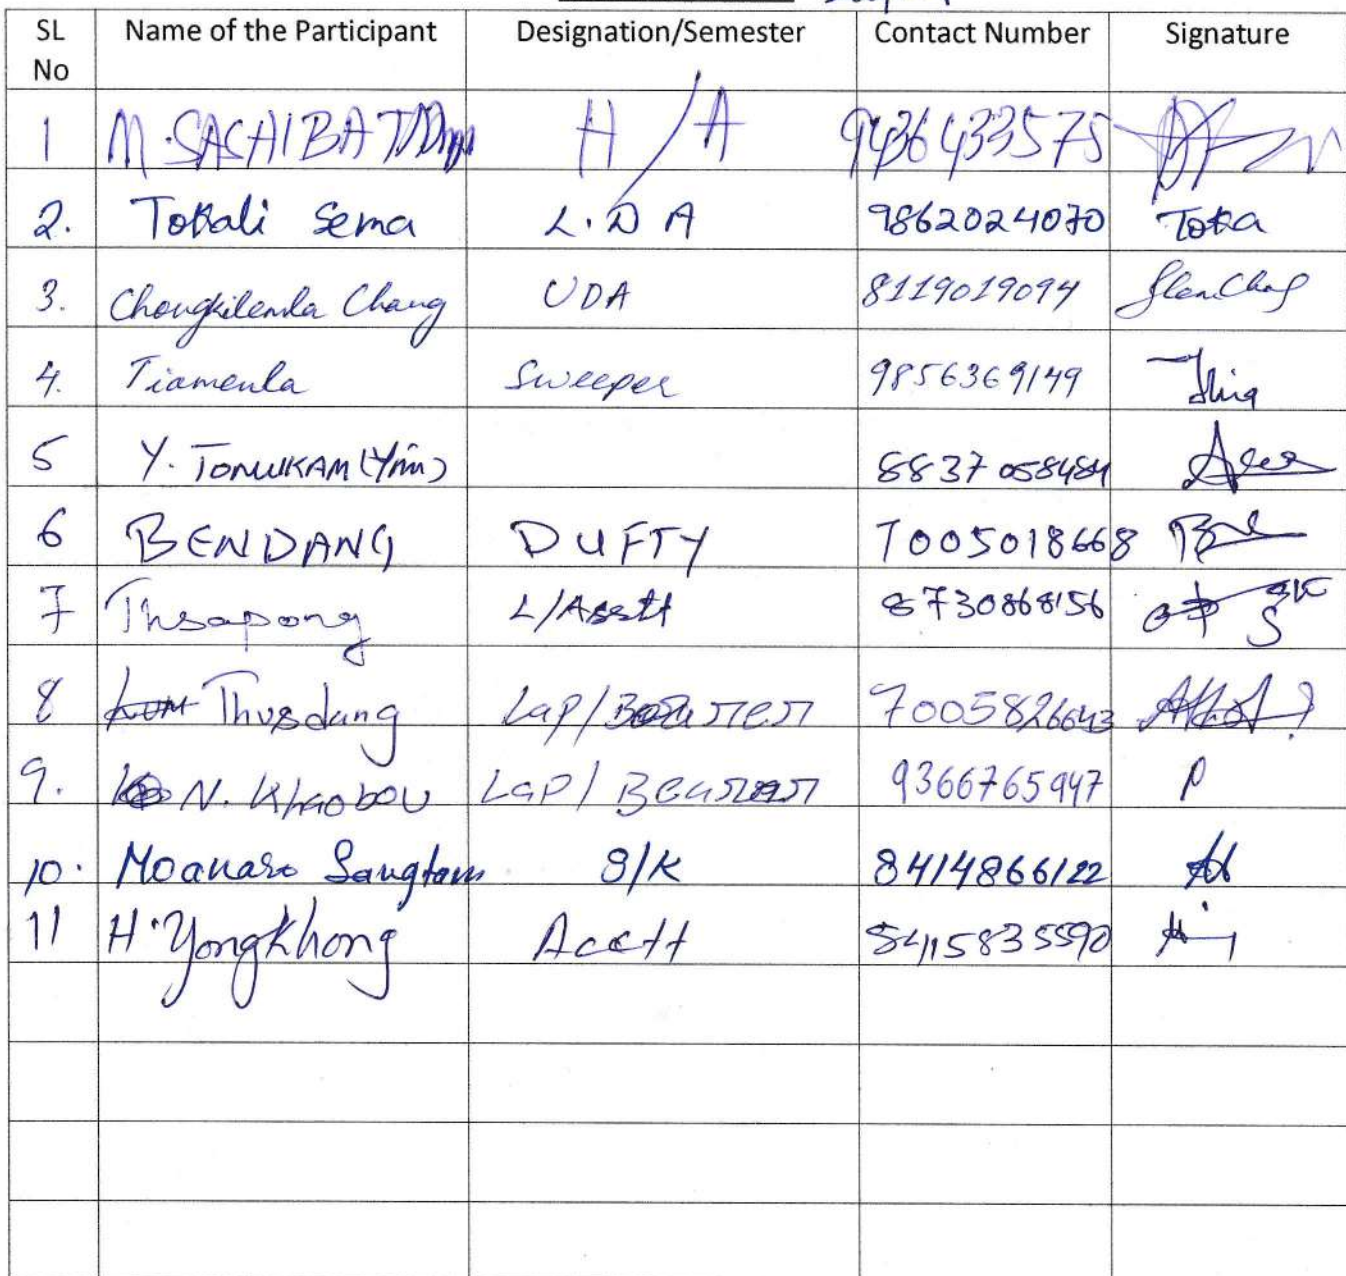 SL No Name of the Participant Designation/Semester Contact Number Signature
1 M. SACHIBA H/A 9436433575
2. Tokali Sema L.D A 9862024070 Toka
3. Chongkilemla Chang UDA 8119019094
4. Tiamenla Sweeper 9856369149
5 Y. TONUKAM (Yim) 8837058484
6 BENDANG DUFTY 7005018668
7 Thsapong L/Asstt 8730868156
8 Thusdang Lap/ 7005826643
9. N. Khaobou Lap/ 9366765947 P
10. Moanaro Sangtam S/K 8414866122
11 H. Yongkhong Acctt 8415835590